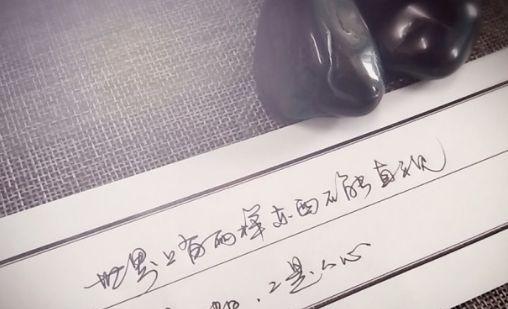 世界上有两样东西不能直视
，二是人心